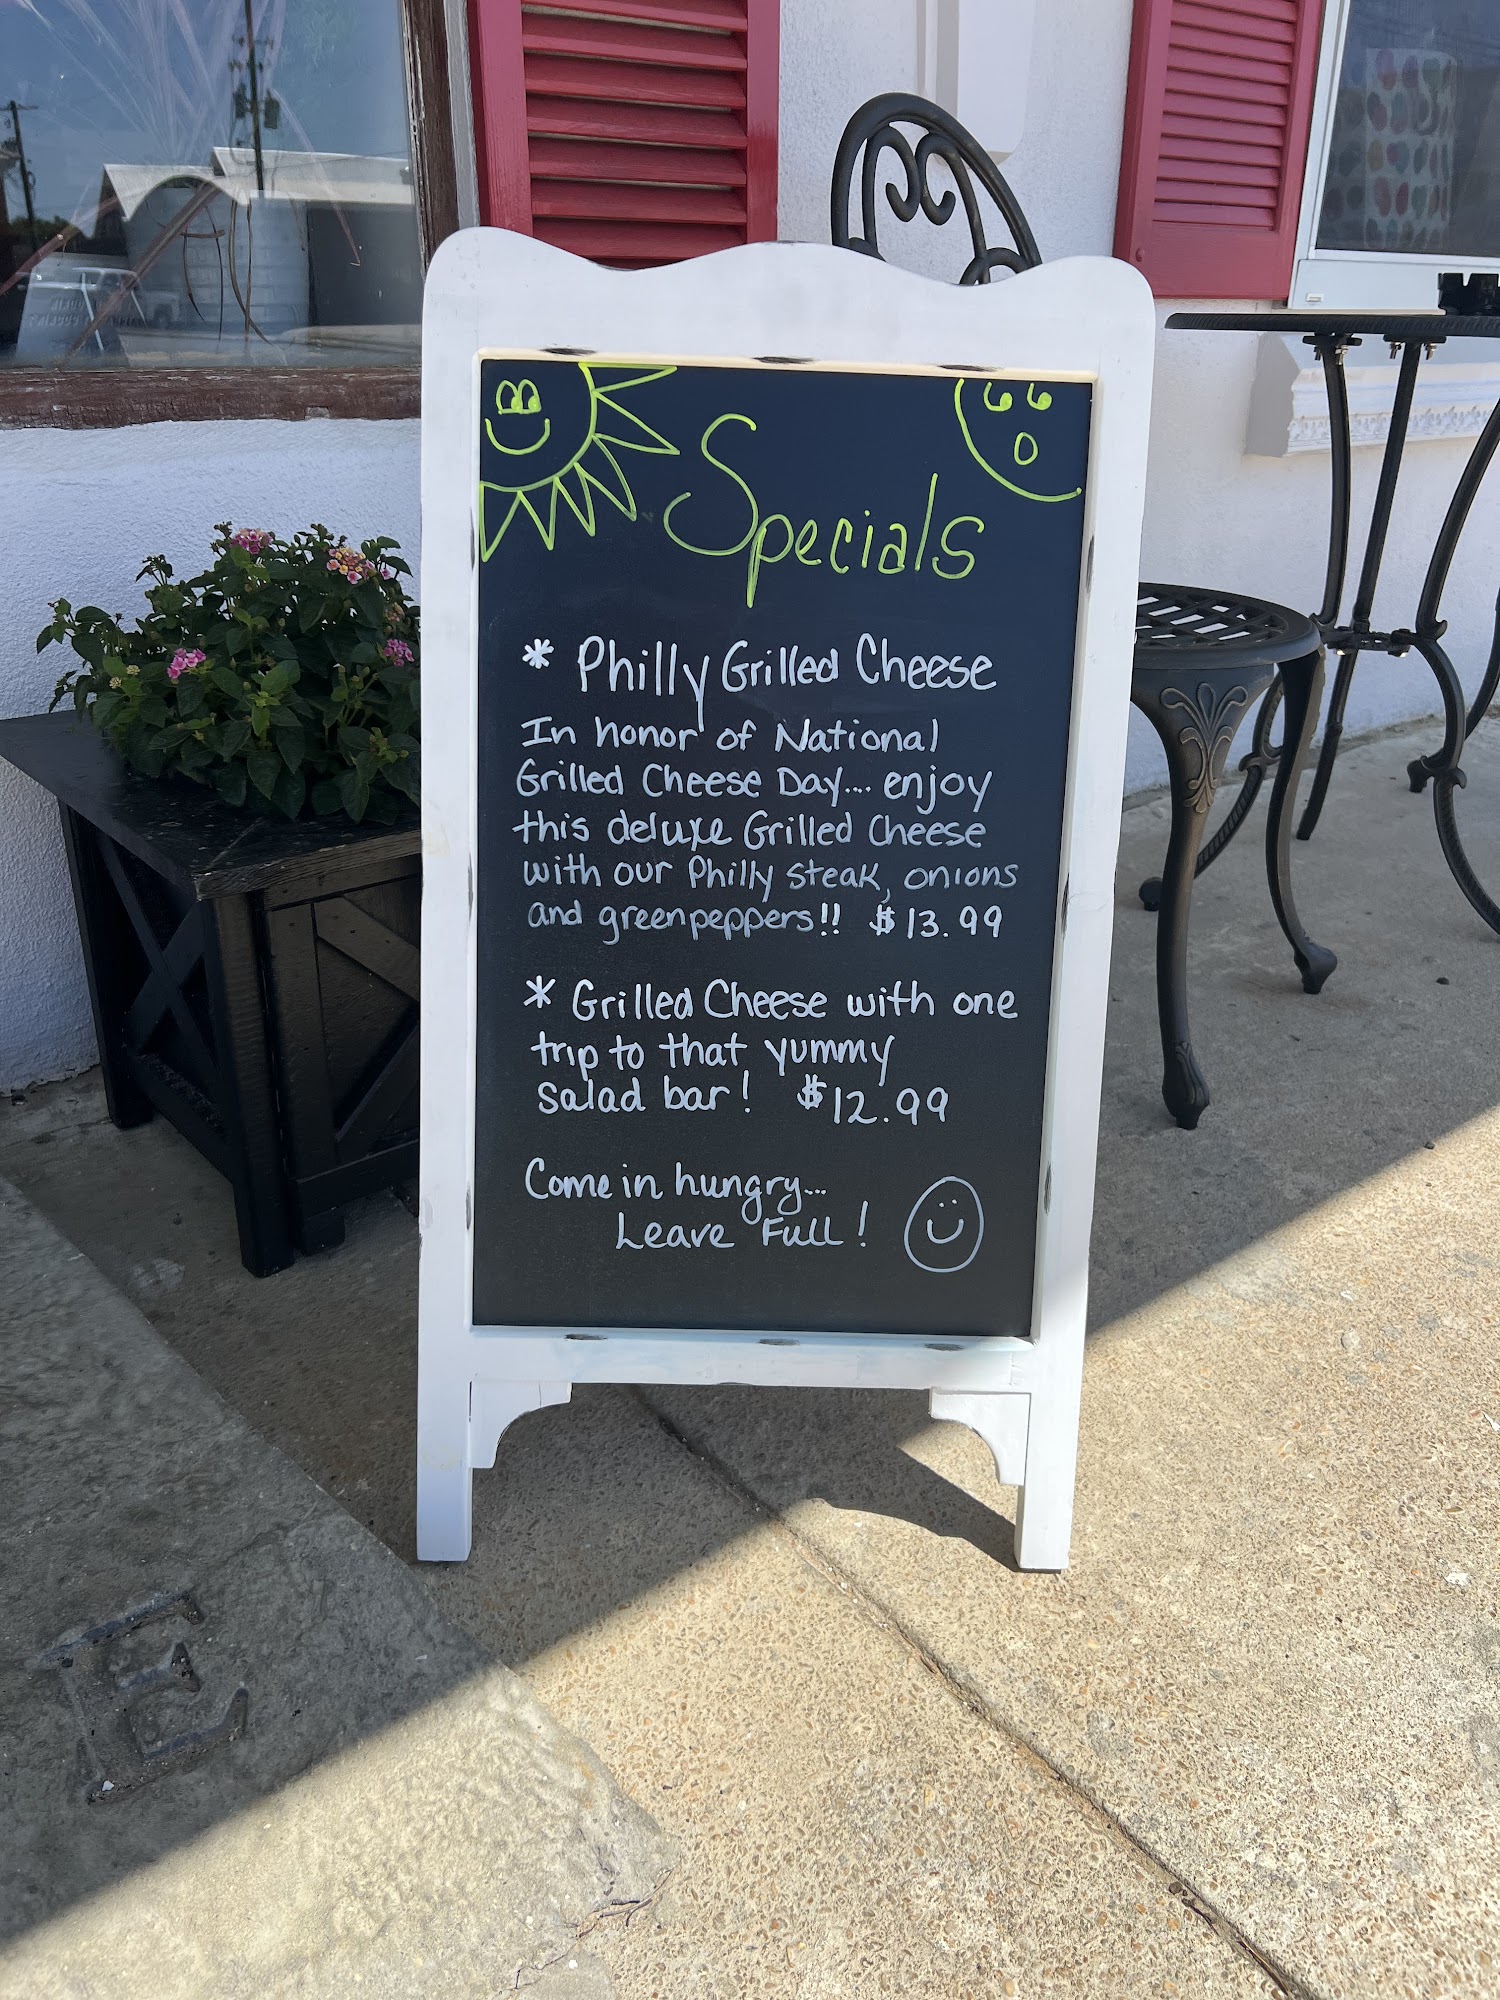 Specials
* Philly Grilled Cheese
In honor of National
Grilled Cheese Day... enjoy
this deluxe Grilled Cheese
with our Philly steak, onions
and green peppers!! $13.99
* Grilled Cheese with one
trip to that yummy
salad bar! $12.99
Come in hungry...
Leave Full!
E